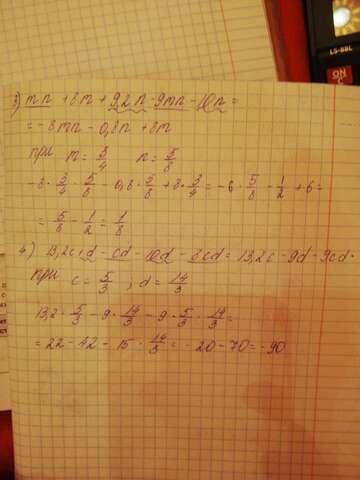 LS-88L
ON
C
3) mn + 8m + 9,2n - 9mn - 10n =
= -8mn - 0,8n + 8m
при m = 3/4 n = 5/8
-8 · 3/4 · 5/8 - 0,8 · 5/8 + 8 · 3/4 = -6 · 5/8 - 1/2 + 6 =
= 5/8 - 1/2 = 1/8
4) 13,2c + d - cd - 10d - 8cd = 13,2c - 9d - 9cd
при c = 5/3 , d = 14/3
13,2 · 5/3 - 9 · 14/3 - 9 · 5/3 · 14/3 =
= 22 - 42 - 15 · 14/3 = -20 - 70 = -90